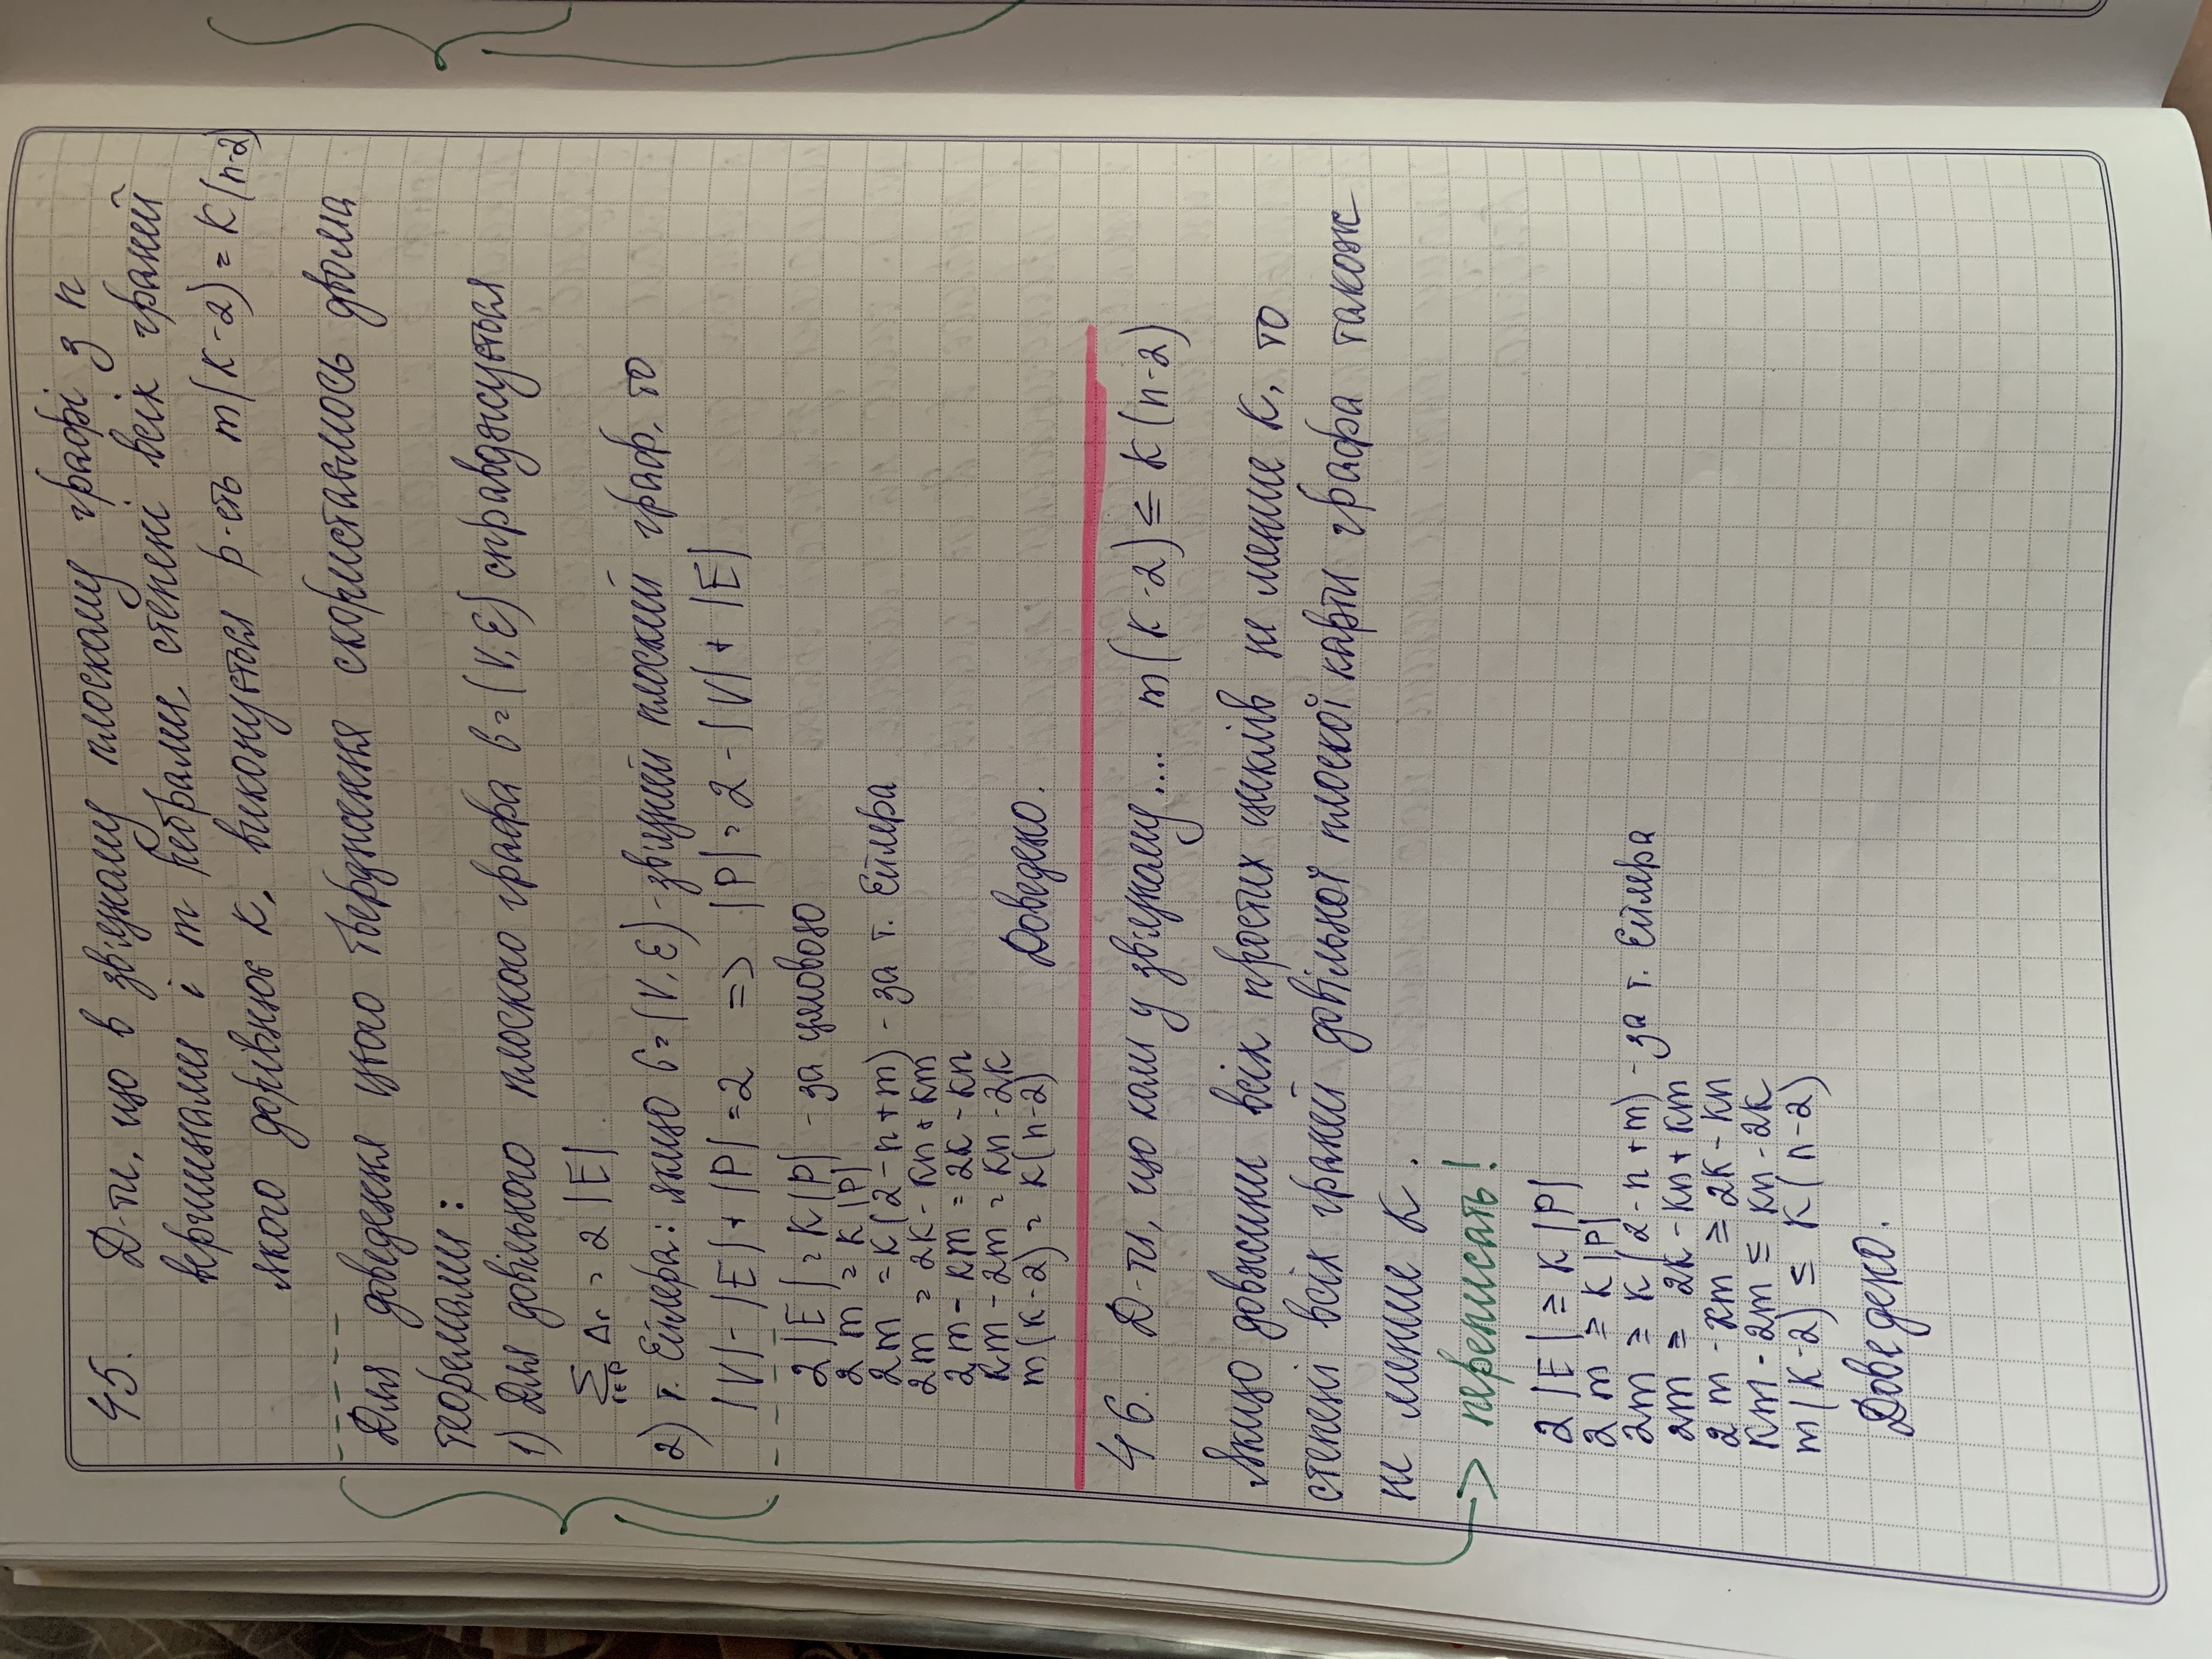 45. Д-ти, що в зв'язному плоскому графі з n
вершинами і m ребрами, степені всіх граней
якого дорівнює K, виконується р-сть m(K-2) = K(n-2)
Для доведення цього твердження скористаємось двома
теоремами:
1) Для довільного плоского графа G = (V, E) справджується
∑ Δr = 2 |E|.
r∈P
2) т. Ейлера: якщо G = (V, E) - зв'язний плоский граф, то
|V| - |E| + |P| = 2 => |P| = 2 - |V| + |E|
2 |E| = K |P| - за умовою
2 m = K |P|
2m = K (2 - n + m) - за т. Ейлера
2m = 2K - Kn + Km
2m - Km = 2K - Kn
Km - 2m = Kn - 2K
m(K-2) = K(n-2) Доведено.
46. Д-ти, що коли у зв'язному.... m(K-2) ≤ K(n-2)
Якщо довжини всіх простих циклів не менше K, то
степені всіх граней довільної плоскої карти графа також
не менше K.
> переписать!
2 |E| ≥ K |P|
2 m ≥ K |P|
2m ≥ K (2 - n + m) - за т. Ейлера
2m ≥ 2K - Kn + Km
2m - Km ≥ 2K - Kn
Km - 2m ≤ Kn - 2K
m(K-2) ≤ K(n-2)
Доведено.